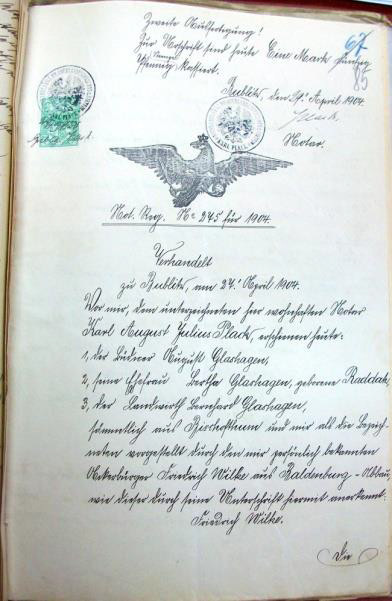 Zweite Ausfertigung!
Zur Urschrift sind heute Eine Mark fünfzig
Pfennig Stempel kassiert.
67
85
Bublitz, den 29. April 1904.
Plack
Notar.
Not. Reg. No 245 für 1904.
Verhandelt
zu Bublitz, am 24. April 1904.
Vor mir, dem unterzeichneten hier wohnhaften Notar
Karl August Julius Plack, erschienen heute:
1, der Büdner August Glashagen,
2, seine Ehefrau Bertha Glashagen, geborene Raddatz,
3, der Landwirth Bernhard Glashagen,
sämmtlich aus Bischofthum und mir als die Bezeich-
neten vorgestellt durch den mir persönlich bekannten
Ackerbürger Friedrich Wilke aus Baldenburg-Abbau,
wie dieser durch seine Unterschrift hiermit anerkennt.
Friedrich Wilke.
Die